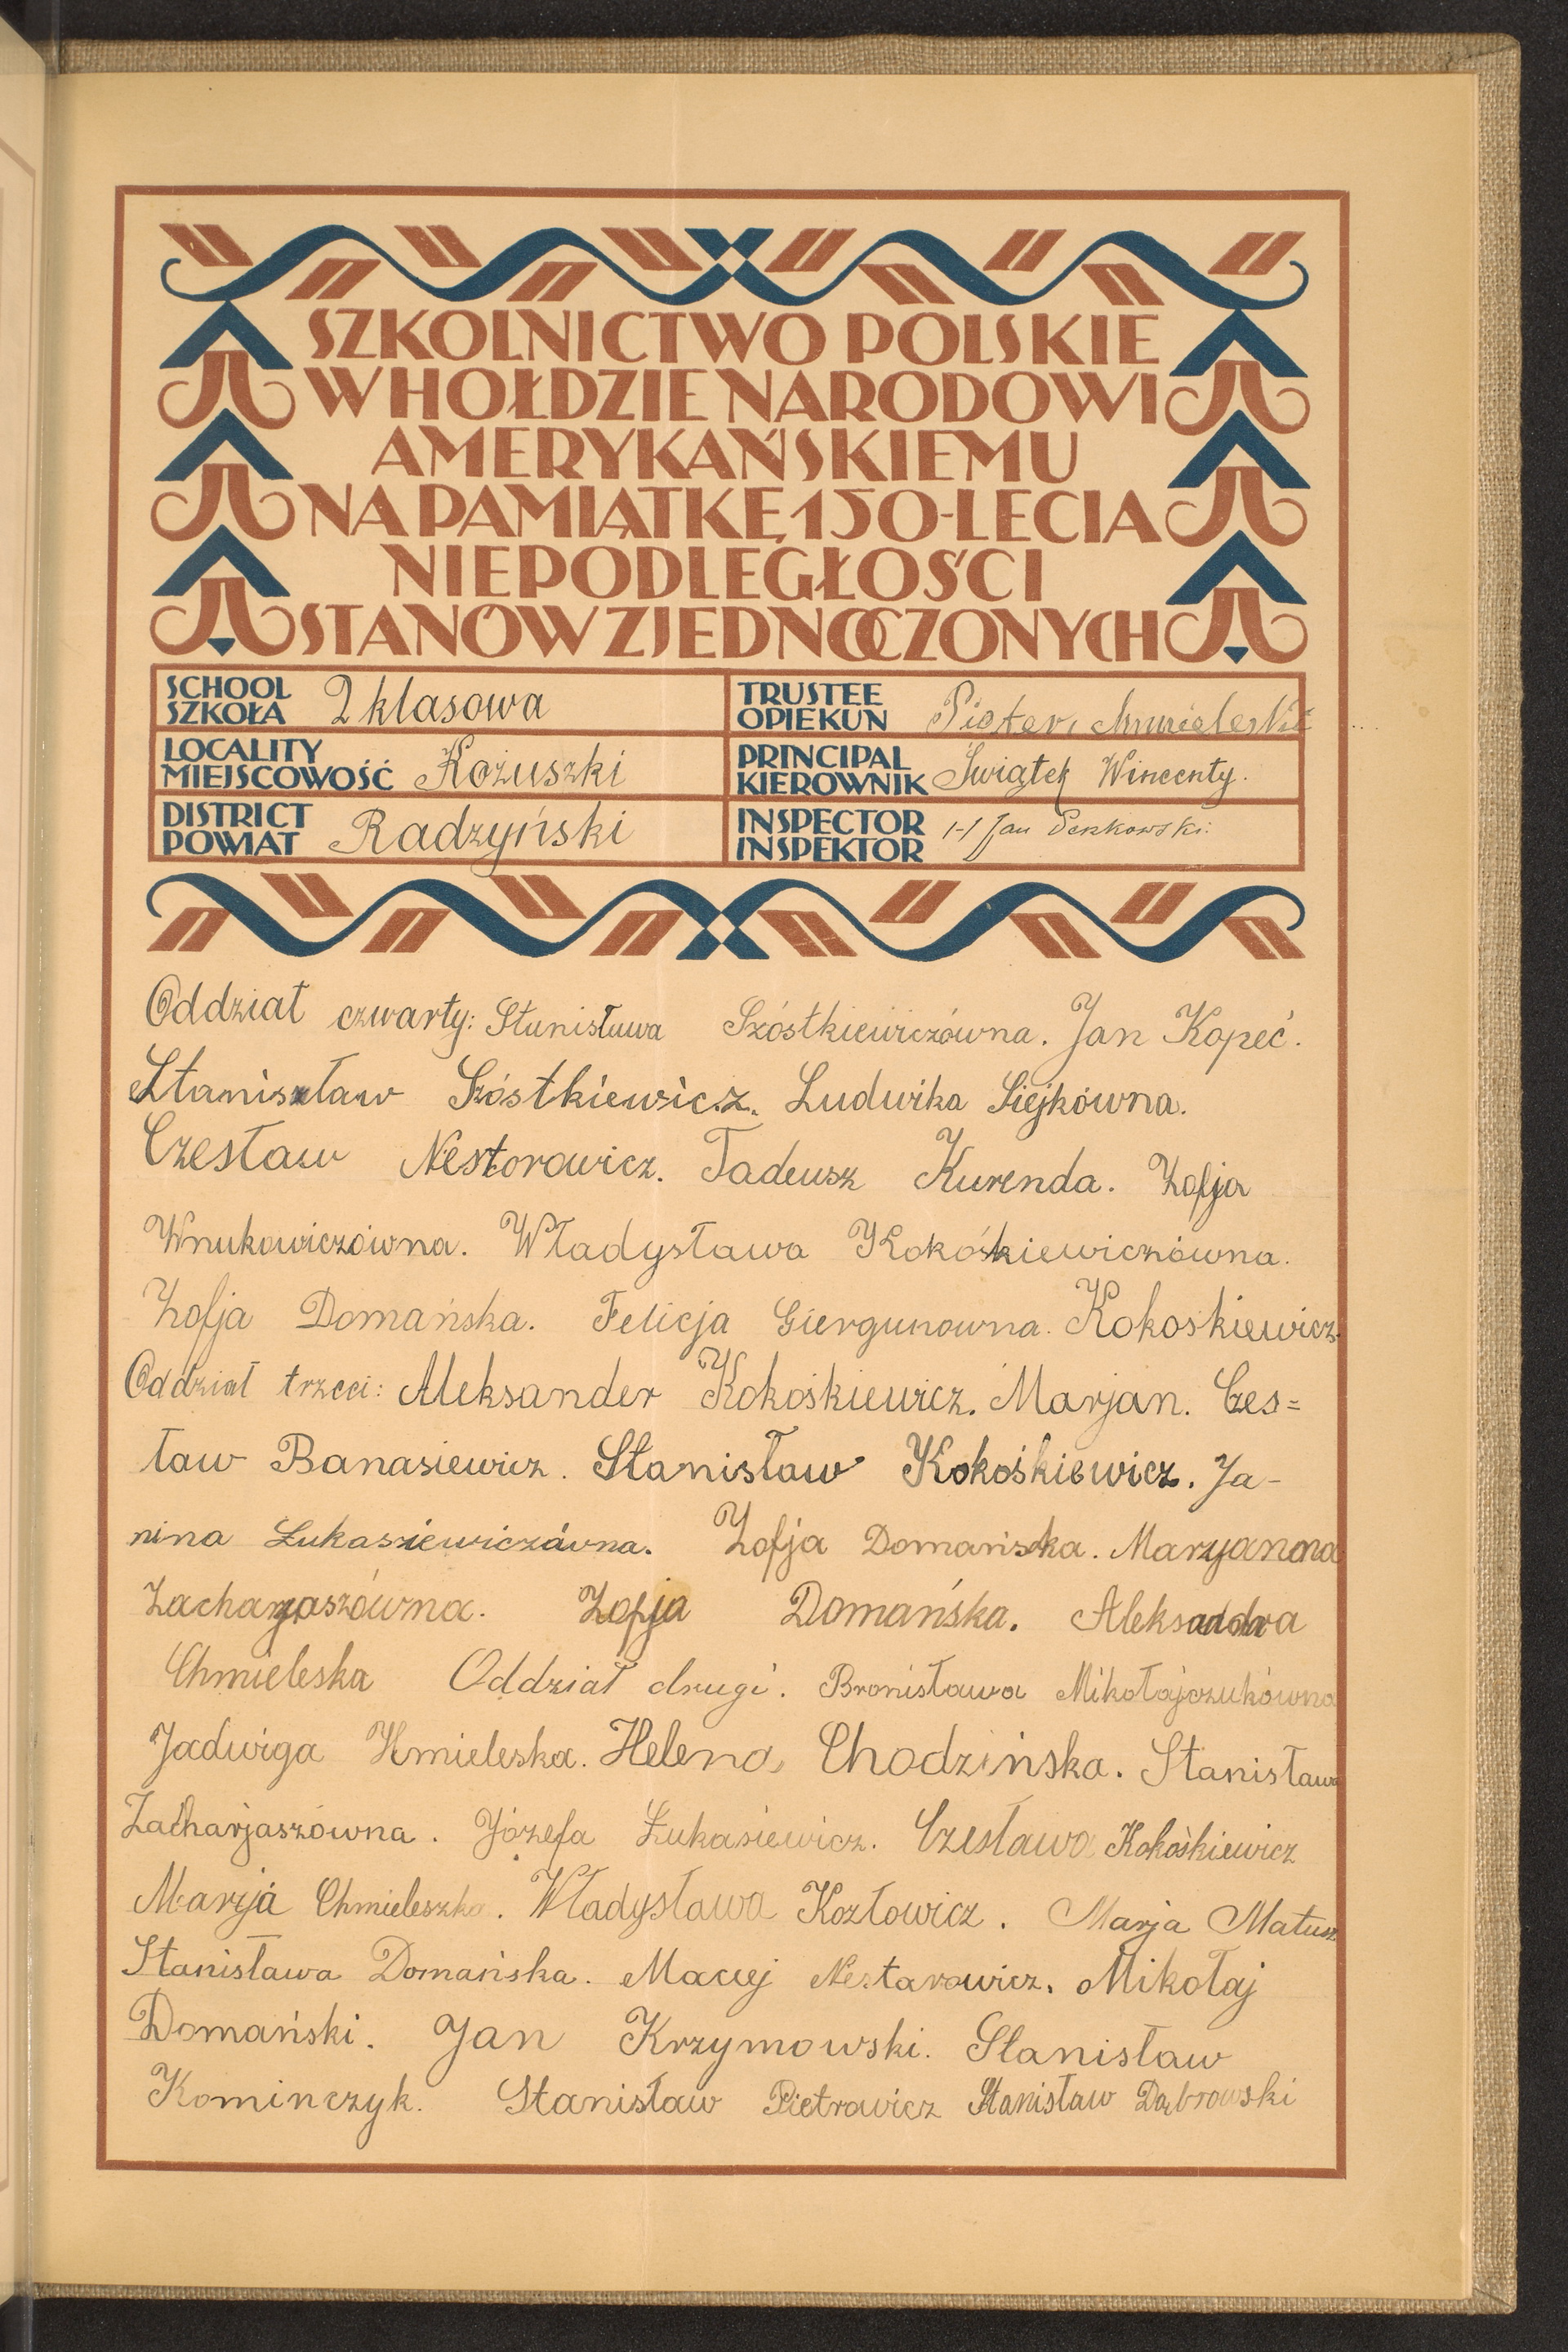 SZKOLNICTWO POLSKIE
W HOŁDZIE NARODOWI
AMERYKAŃSKIEMU
NA PAMIĄTKĘ 150-LECIA
NIEPODLEGŁOŚCI
STANÓW ZJEDNOCZONYCH
SCHOOL
SZKOŁA 2 klasowa
TRUSTEE
OPIEKUN Pioter
LOCALITY
MIEJSCOWOŚĆ Kożuszki
PRINCIPAL
KIEROWNIK Świątek Wincenty.
DISTRICT
POWIAT Radzyński
INSPECTOR
INSPEKTOR /-/ Jan
Oddział czwarty: Stanisława Szóstkiewiczówna. Jan Kopeć.
Stanisław Szóstkiewicz. Ludwika Siejkówna.
Czesław Nestorowicz. Tadeusz Kurenda. Zofja
Wnukowiczówna. Władysława Kokośkiewiczówna.
Zofja Domańska. Felicja Giergunowna. Kokoskiewicz.
Oddział trzeci: Aleksander Kokośkiewicz. Marjan. Czes=
ław Banasiewicz. Stanisław Kokośkiewicz. Ja-
nina Łukasiewiczówna. Zofja Domańska. Maryanna
Zacharyaszówna. Zofja Domańska. Aleksandra
Chmieleska Oddział drugi. Bronisława Mikołajczukówna
Jadwiga Hmieleska. Helena Chodzińska. Stanisława
Zacharjaszówna. Józefa Łukasiewicz. Czesława Kokośkiewicz
Marja Chmieleszka. Władysława Kozłowicz. Marja Matusz
Stanisława Domańska. Maciej Nestarowicz. Mikołaj
Domański. Jan Krzymowski. Stanisław
Kominczyk. Stanisław Pietrowicz Stanisław Dąbrowski